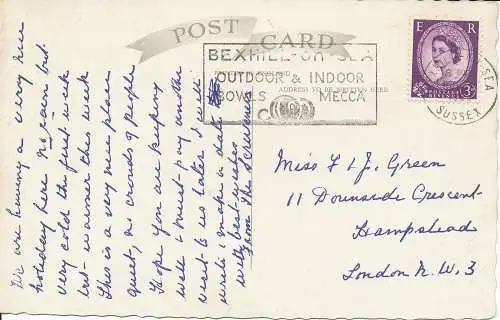 POST CARD
BEXHILL-ON-SEA
OUTDOOR & INDOOR
BOWLS MECCA
ADDRESS TO BE WRITTEN HERE
E R
3D
SEA
SUSSEX
We are having a very nice
holiday here no rain but
very cold the first week
but warmer this week
This is a very nice place
quiet, no crowds of people
Hope you are keeping
well & must pay another
visit to us later I will
write & make a date
with best wishes
from
Miss F & J. Green
11 Downside Crescent
Hampstead
London N.W.3